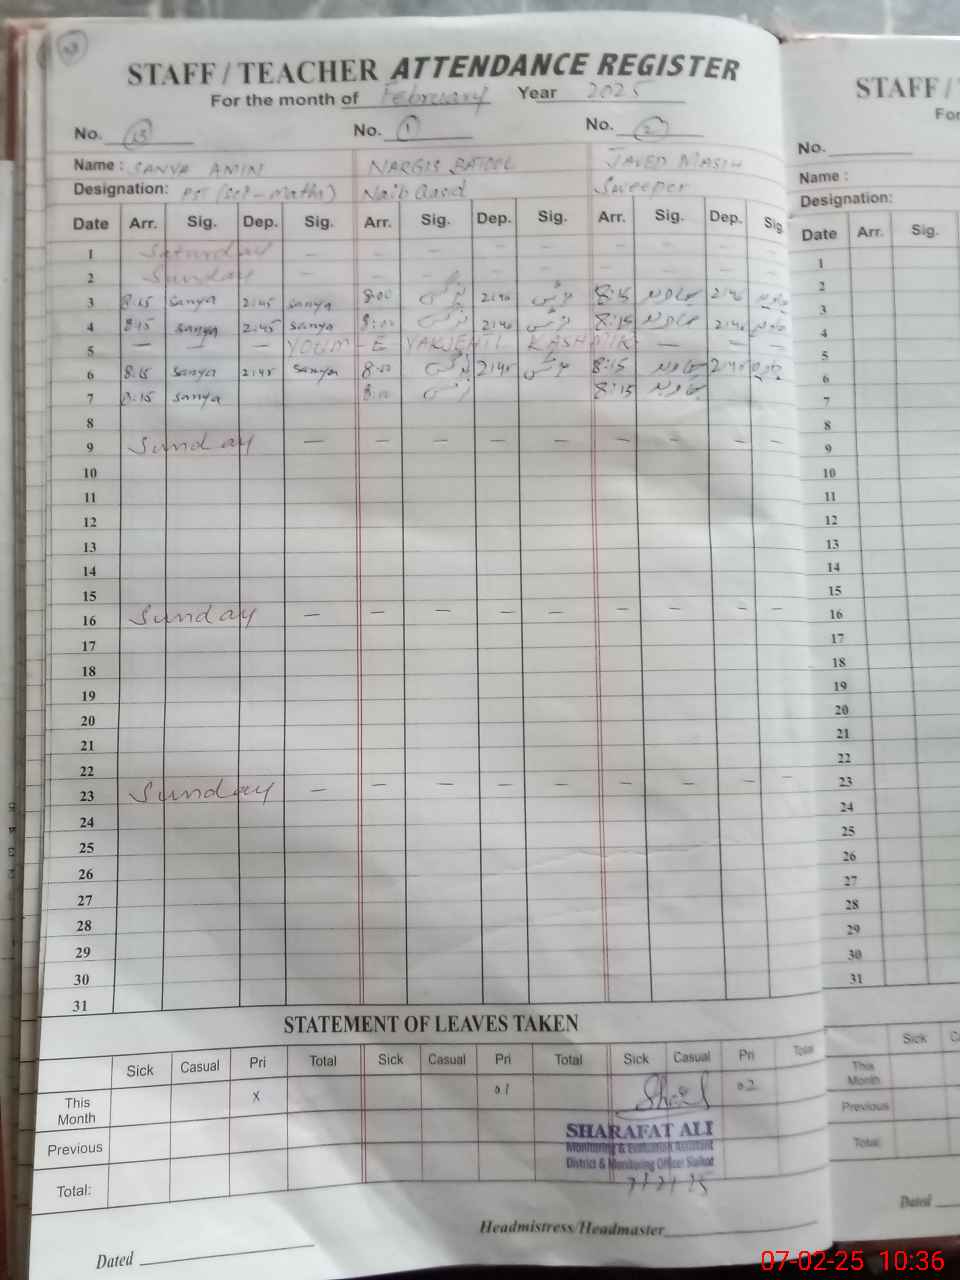 STAFF / TEACHER ATTENDANCE REGISTER
For the month of February Year 2025
No. 13 No. 1 No. 2
Name : SANYA AMIN NARGIS BATOOL JAVED MASIH
Designation: PST (sci-maths) Naib Qasid Sweeper
Date Arr. Sig. Dep. Sig. Arr. Sig. Dep. Sig. Arr. Sig. Dep. Sig.
1 Saturday — — — — — — — — —
2 Sunday — — — — — — — — —
3 8:15 sanya 2:45 sanya 8:00 نرگس 2:45 نرگس 8:15 جاوید 2:45 جاوید
4 8:15 sanya 2:45 sanya 8:00 نرگس 2:45 نرگس 8:15 جاوید 2:45 جاوید
5 — — — YOUM-E YAKJEHTI KASHMIR — — —
6 8:15 sanya 2:45 sanya 8:00 نرگس 2:45 نرگس 8:15 جاوید 2:45 جاوید
7 8:15 sanya 8:00 نرگس 8:15 جاوید
8
9 Sunday — — — — — — — — —
10
11
12
13
14
15
16 Sunday — — — — — — — — —
17
18
19
20
21
22
23 Sunday — — — — — — — — —
24
25
26
27
28
29
30
31
STATEMENT OF LEAVES TAKEN
Sick Casual Pri Total Sick Casual Pri Total Sick Casual Pri Total
This Month x 01 02
Previous
Total:
SHARAFAT ALI
Monitoring & Evaluation Assistant
District & Monitoring Officer Sialkot
7/2/25
Headmistress/Headmaster
Dated
STAFF / T
For
No.
Name :
Designation:
Date Arr. Sig.
1
2
3
4
5
6
7
8
9
10
11
12
13
14
15
16
17
18
19
20
21
22
23
24
25
26
27
28
29
30
31
Sick C
This Month
Previous
Total
Dated
07-02-25 10:36